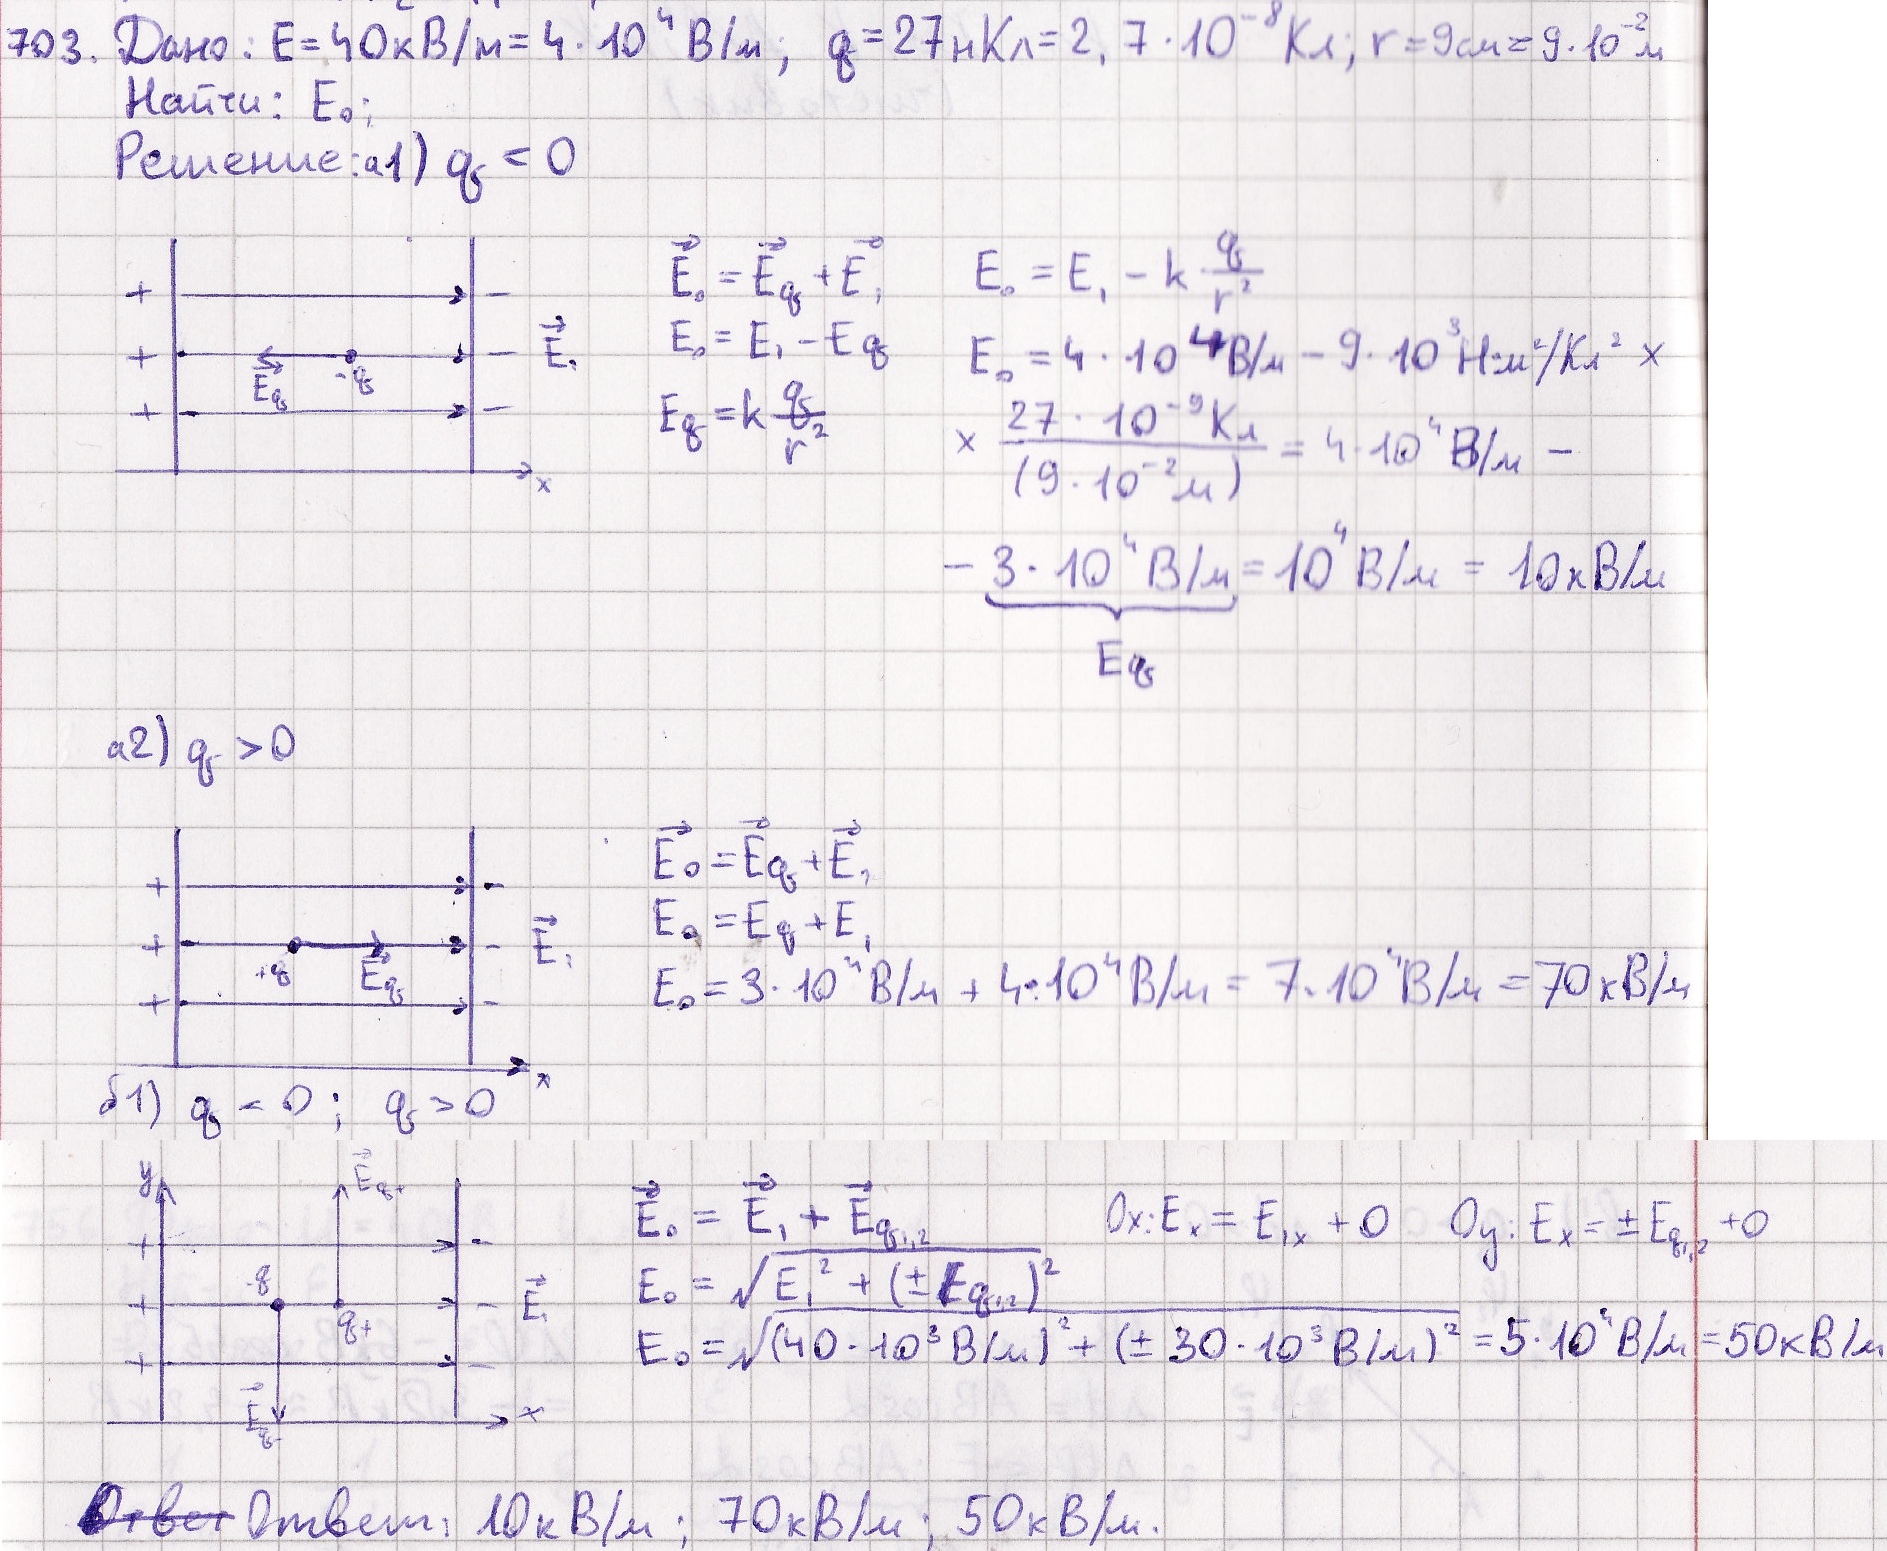 703. Дано: E=40кВ/м=4·10⁴В/м; q=27нКл=2,7·10⁻⁸Кл; r=9см=9·10⁻²м
Найти: E₀;
Решение: а1) q < 0
+ −
+ − E⃗₁
E⃗q -q
+ −
x
E⃗₀ = E⃗q + E⃗₁
E₀ = E₁ − Eq
Eq = k q/r²
E₀ = E₁ − k · q/r²
E₀ = 4·10⁴В/м − 9·10⁹Н·м²/Кл² ×
× 27·10⁻⁹Кл/(9·10⁻²м) = 4·10⁴В/м −
− 3·10⁴В/м = 10⁴В/м = 10кВ/м
Eq
а2) q > 0
+ −
+ − E⃗₁
+q E⃗q
+ −
x
E⃗₀ = E⃗q + E⃗₁
E₀ = Eq + E₁
E₀ = 3·10⁴В/м + 4·10⁴В/м = 7·10⁴В/м = 70кВ/м
б1) q < 0; q > 0
y E⃗q+
+ −
-q
+ − E⃗₁
q+
+ −
E⃗q- x
E⃗₀ = E⃗₁ + E⃗q₁,₂ Ox: Ex = E₁x + 0 Oy: Ex = ±Eq₁,₂ + 0
E₀ = √(E₁² + (±Eq₁,₂)²)
E₀ = √((40·10³В/м)² + (±30·10³В/м)²) = 5·10⁴В/м = 50кВ/м
Ответ Ответ: 10кВ/м; 70кВ/м; 50кВ/м.